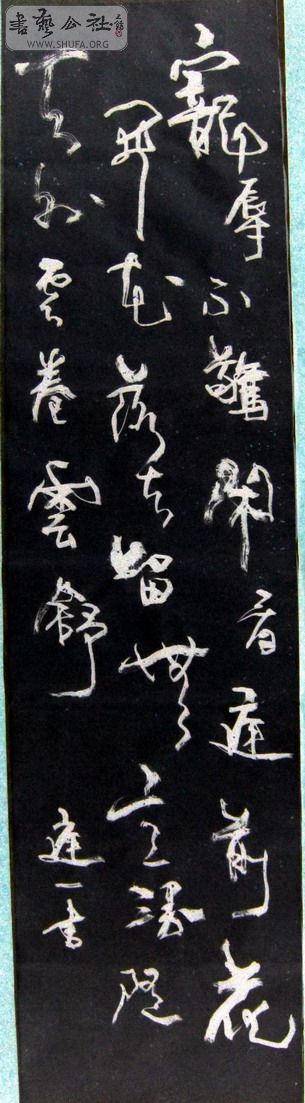 書藝公社
WWW.SHUFA.ORG
寵辱不驚閑看庭前花
開花落去留無意漫隨
天外雲卷雲舒
一書